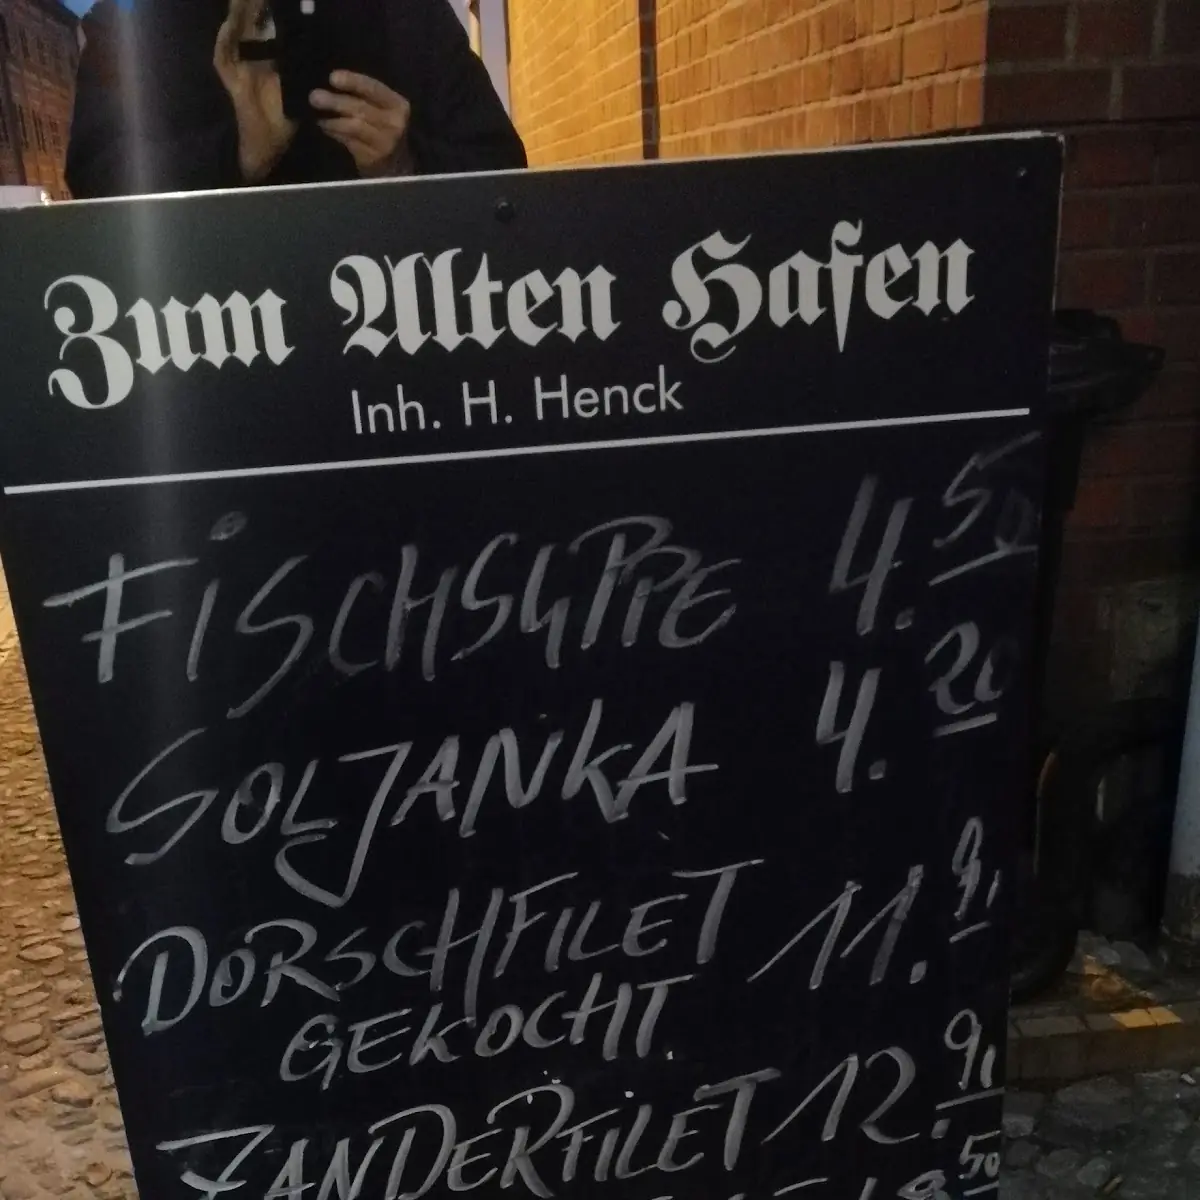 Zum Alten Hafen
Inh. H. Henck
FISCHSUPPE 4.50
SOLJANKA 4.20
DORSCHFILET 11.9,
GEKOCHT.
ZANDERFILET 12.9,
50